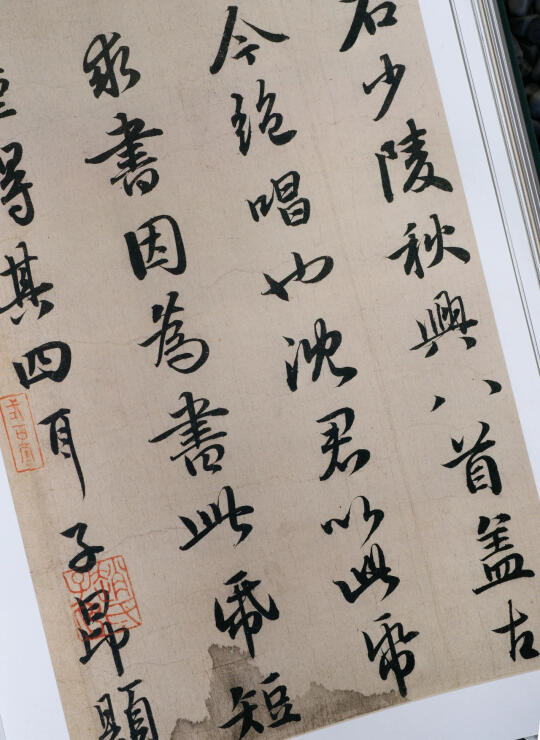 右少陵秋興八首盖古
今絶唱也沈君以此帋
求書因為書此帋短
得其四耳子昂題
趙氏子昂